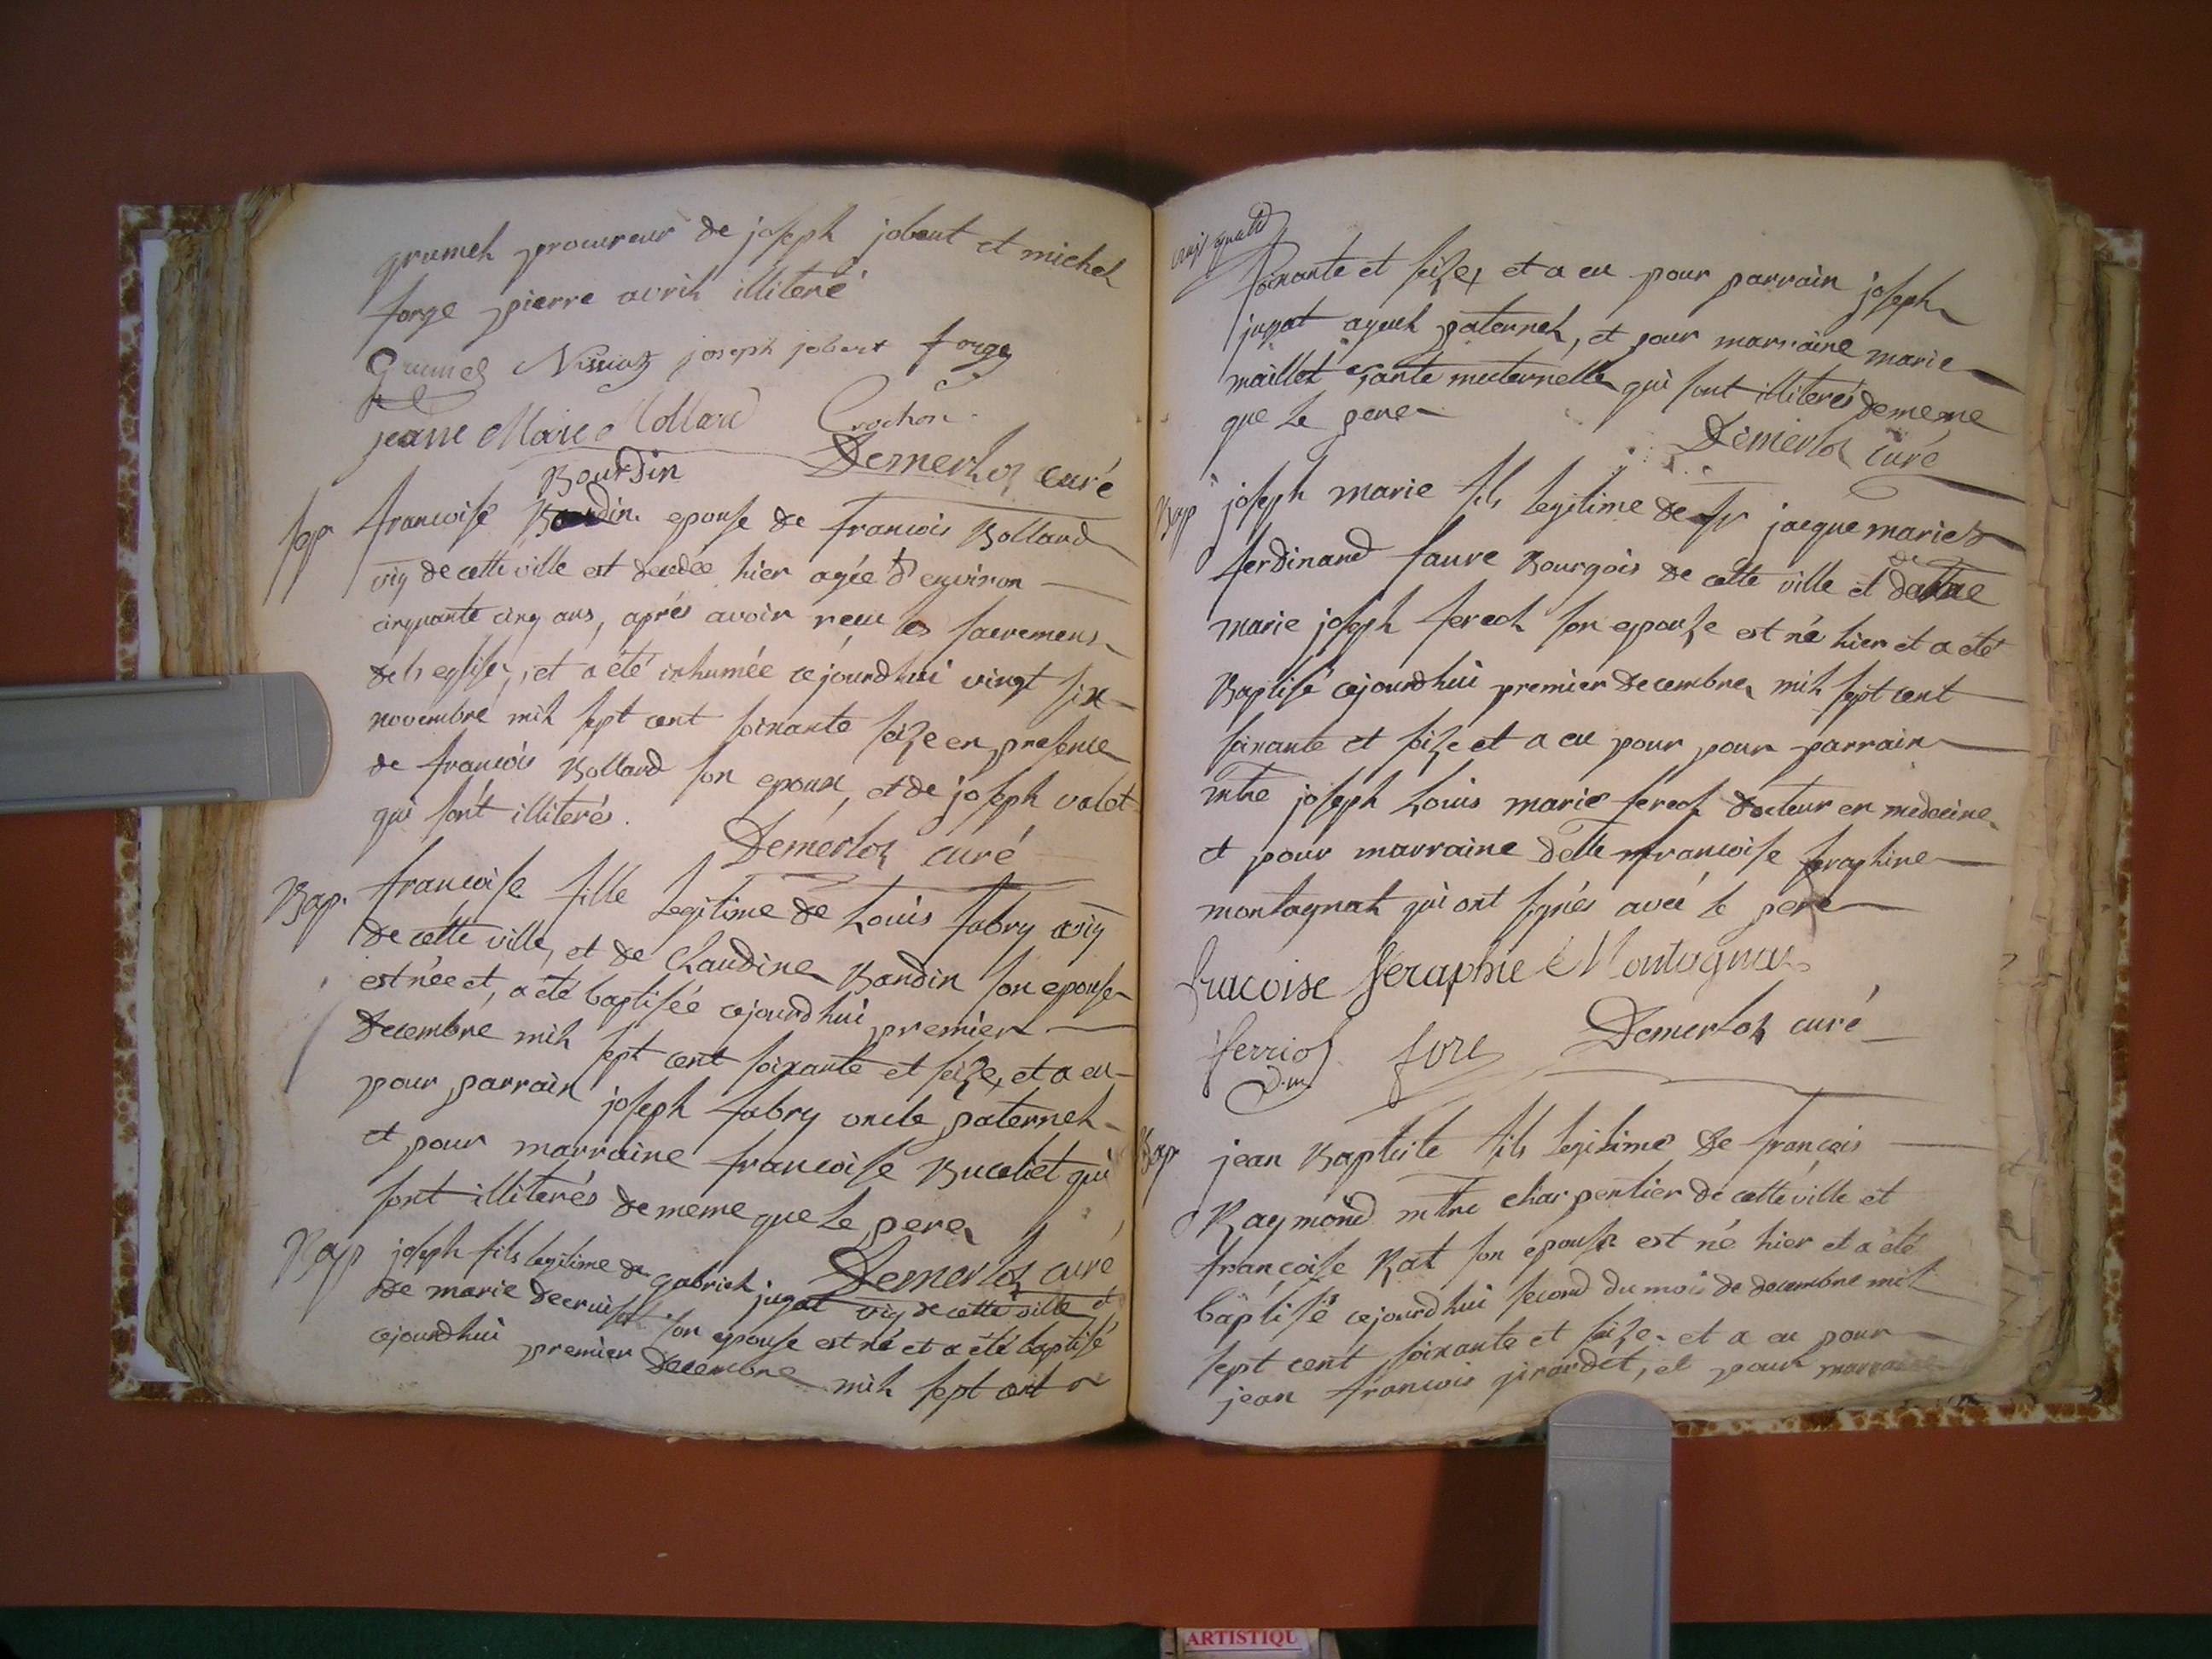 grumel procureur de joseph jobert et michel
forge pierre avril illiteré
Grumel Nissiaz joseph jobert forge
jeane Marie Mollard Crochon
Demerloz curé
Bourdin
Sep francoise epouse de francois Bollard
vig de cette ville est decedée hier agée d'environ
cinquante cinq ans, aprés avoir reçu les sacremens
de l'eglise, et a été inhumée cejourdhui vingt six
novembre mil sept cent soixante seize en presence
de francois Bollard son epoux, et de joseph valet
qui sont illiterés.
Demerloz curé
Bap. francoise fille legitime de Louis fabry vig
de cette ville, et de Claudine Bandin son epouse
est née et, a été baptisée cejourdhui premier
decembre mil sept cent soixante et seize, et a eu
pour parrain joseph fabry oncle paternel
et pour marraine francoise Buceliet qui
sont illiterés de meme que le pere
Demerloz curé
Bap joseph fils legitime de gabriel jugat vig de cette ville et
de marie decruise son epouse est né et a été baptisé
cejourdhui premier decembre mil sept cent
soixante et seize, et a eu pour parrain joseph
jugat ayeul paternel, et pour marraine marie
maillet tante maternelle qui sont illiterés de meme
que le pere
Demerloz curé
Bap joseph marie fils legitime de sr jacque marie
ferdinand faure Bourgois de cette ville et de
marie joseph fereol son epouse est né hier et a été
Baptisé cejourdhui premier decembre mil sept cent
soixante et seize et a eu pour pour parrain
mtre joseph Louis marie fereol docteur en medecine
et pour marraine delle francoise seraphine
montagnat qui ont signés avec le pere
fracoise seraphie Montagnat
ferriol fore Demerloz curé
d.m
Bap jean Baptiste fils legitime de françois
Raymond mtre charpentier de cette ville et
françoise Rat son épouse est né hier et a été
baptisé cejourdhui second du mois de decembre mil
sept cent soixante et seize et a eu pour
jean francois girardet, et pour marraine
ARTISTIQU